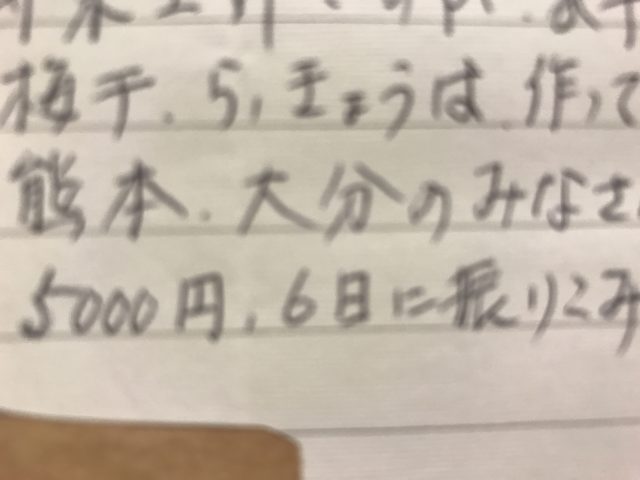 梅干、らっきょうは、作って
熊本、大分のみなさ
5000円、6日に振りこみ